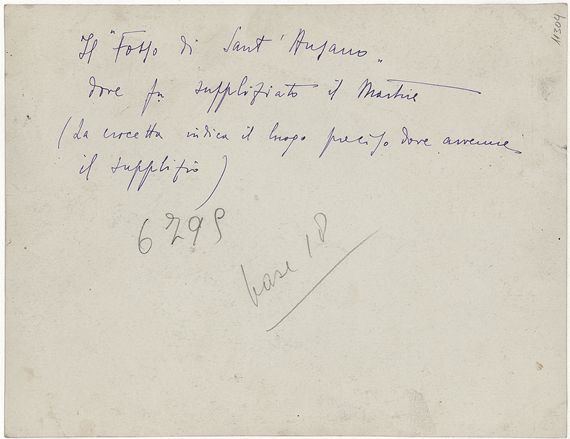 11304
Il "Fosso di Sant'Ansano"
dove fu suppliziato il Martire
(La crocetta indica il luogo preciso dove avvenne
il supplizio)
6299
base 18